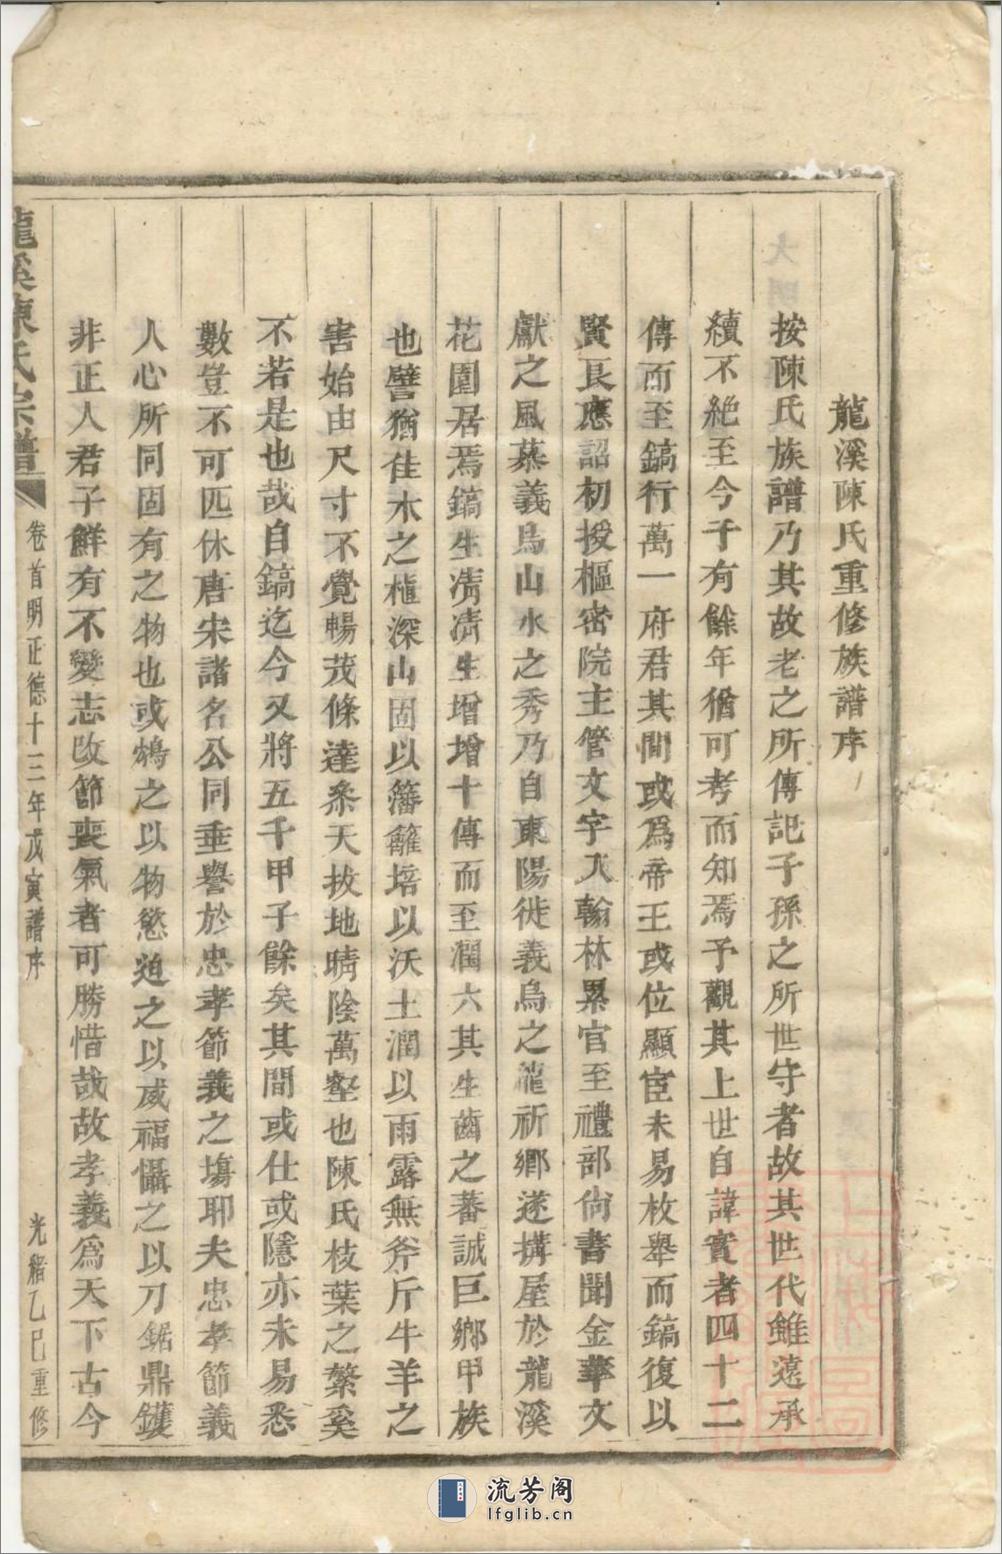 龍溪陳氏重修族譜序
按陳氏族譜乃其故老之所傳記子孫之所世守者故其世代雖遠承
續不絶至今千有餘年猶可考而知焉予觀其上世自諱實者四十二
傳而至鎬行萬一府君其間或爲帝王或位顯宦未易枚舉而鎬復以
賢良應詔初授樞密院主管文字入翰林累官至禮部尚書聞金華文
獻之風慕義烏山水之秀乃自東陽徙義烏之龍祈鄉遂搆屋於龍溪
花園居焉鎬生淸淸生增增十傳而至潤六其生齒之蕃誠巨鄉甲族
也譬猶佳木之植深山固以籓籬培以沃土潤以雨露無斧斤牛羊之
害始由尺寸不覺暢茂條達叅天拔地晴陰萬壑也陳氏枝葉之繁奚
不若是也哉自鎬迄今又將五千甲子餘矣其間或仕或隱亦未易悉
數豈不可匹休唐宋諸名公同垂譽於忠孝節義之塲耶夫忠孝節義
人心所同固有之物也或鴆之以物慾廹之以威福懾之以刀鋸鼎鑊
非正人君子鮮有不變志改節喪氣者可勝惜哉故孝義爲天下古今
龍溪陳氏宗譜
卷首明正德十三年戊寅譜序
光緒乙巳重修
流芳阁
lfglib.cn